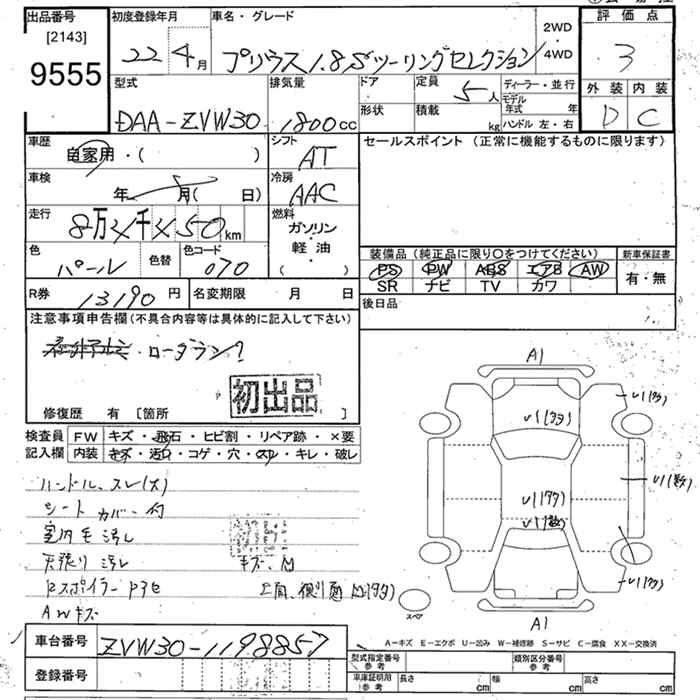 出品番号 初度登録年月 車名・グレード 2WD・4WD 評価点
[2143]
9555 22年4月 プリウス1.8Sツーリングセレクション 3
型式 排気量 ドア 定員 5人 ディーラー・並行 外装 内装
DAA-ZVW30 1800cc 形状 積載 kg モデル年式 年 D C
ハンドル 左・右
車歴 自家用・( ) シフト AT セールスポイント (正常に機能するものに限ります)
車検 年 月( 日) 冷房 AAC
走行 8万メ千メ50km 燃料 ガソリン・軽油( )
色 パール 色替 色コード 070
装備品 (純正品に限り○をつけてください) 新車保証書
PS PW ABS エアB AW 有・無
SR ナビ TV カワ
R券 13190円 名変期限 月 日 後日品
注意事項申告欄(不具合内容等は具体的に記入して下さい)
ロータラン?
初出品
修復歴 有 [箇所 ]
検査員 FW キズ・飛石・ヒビ割・リペア跡・×要
記入欄 内装 キズ・汚れ・コゲ・穴・スレ・キレ・破レ
ハンドル、スレ(大)
シートカバー付
室内毛汚れ
天張り汚れ キズ、凹
Rスポイラー アクセ 上面、側面凹(多タ)
AWキズ
A1
A1
スペア
A-キズ E-エクボ U-凹み W-補修跡 S-サビ C-腐食 XX-交換済
車台番号 ZVW30-1198857
登録番号
型式指定番号 参考 類別区分番号 参考
車庫証明用 参考 長さ cm 幅 cm 高さ cm